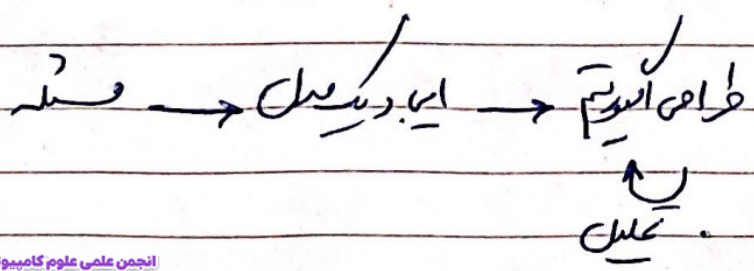 مسئله → ایجاد یک مدل → طراحی الگوریتم
تحلیل
انجمن علمی علوم کامپیو